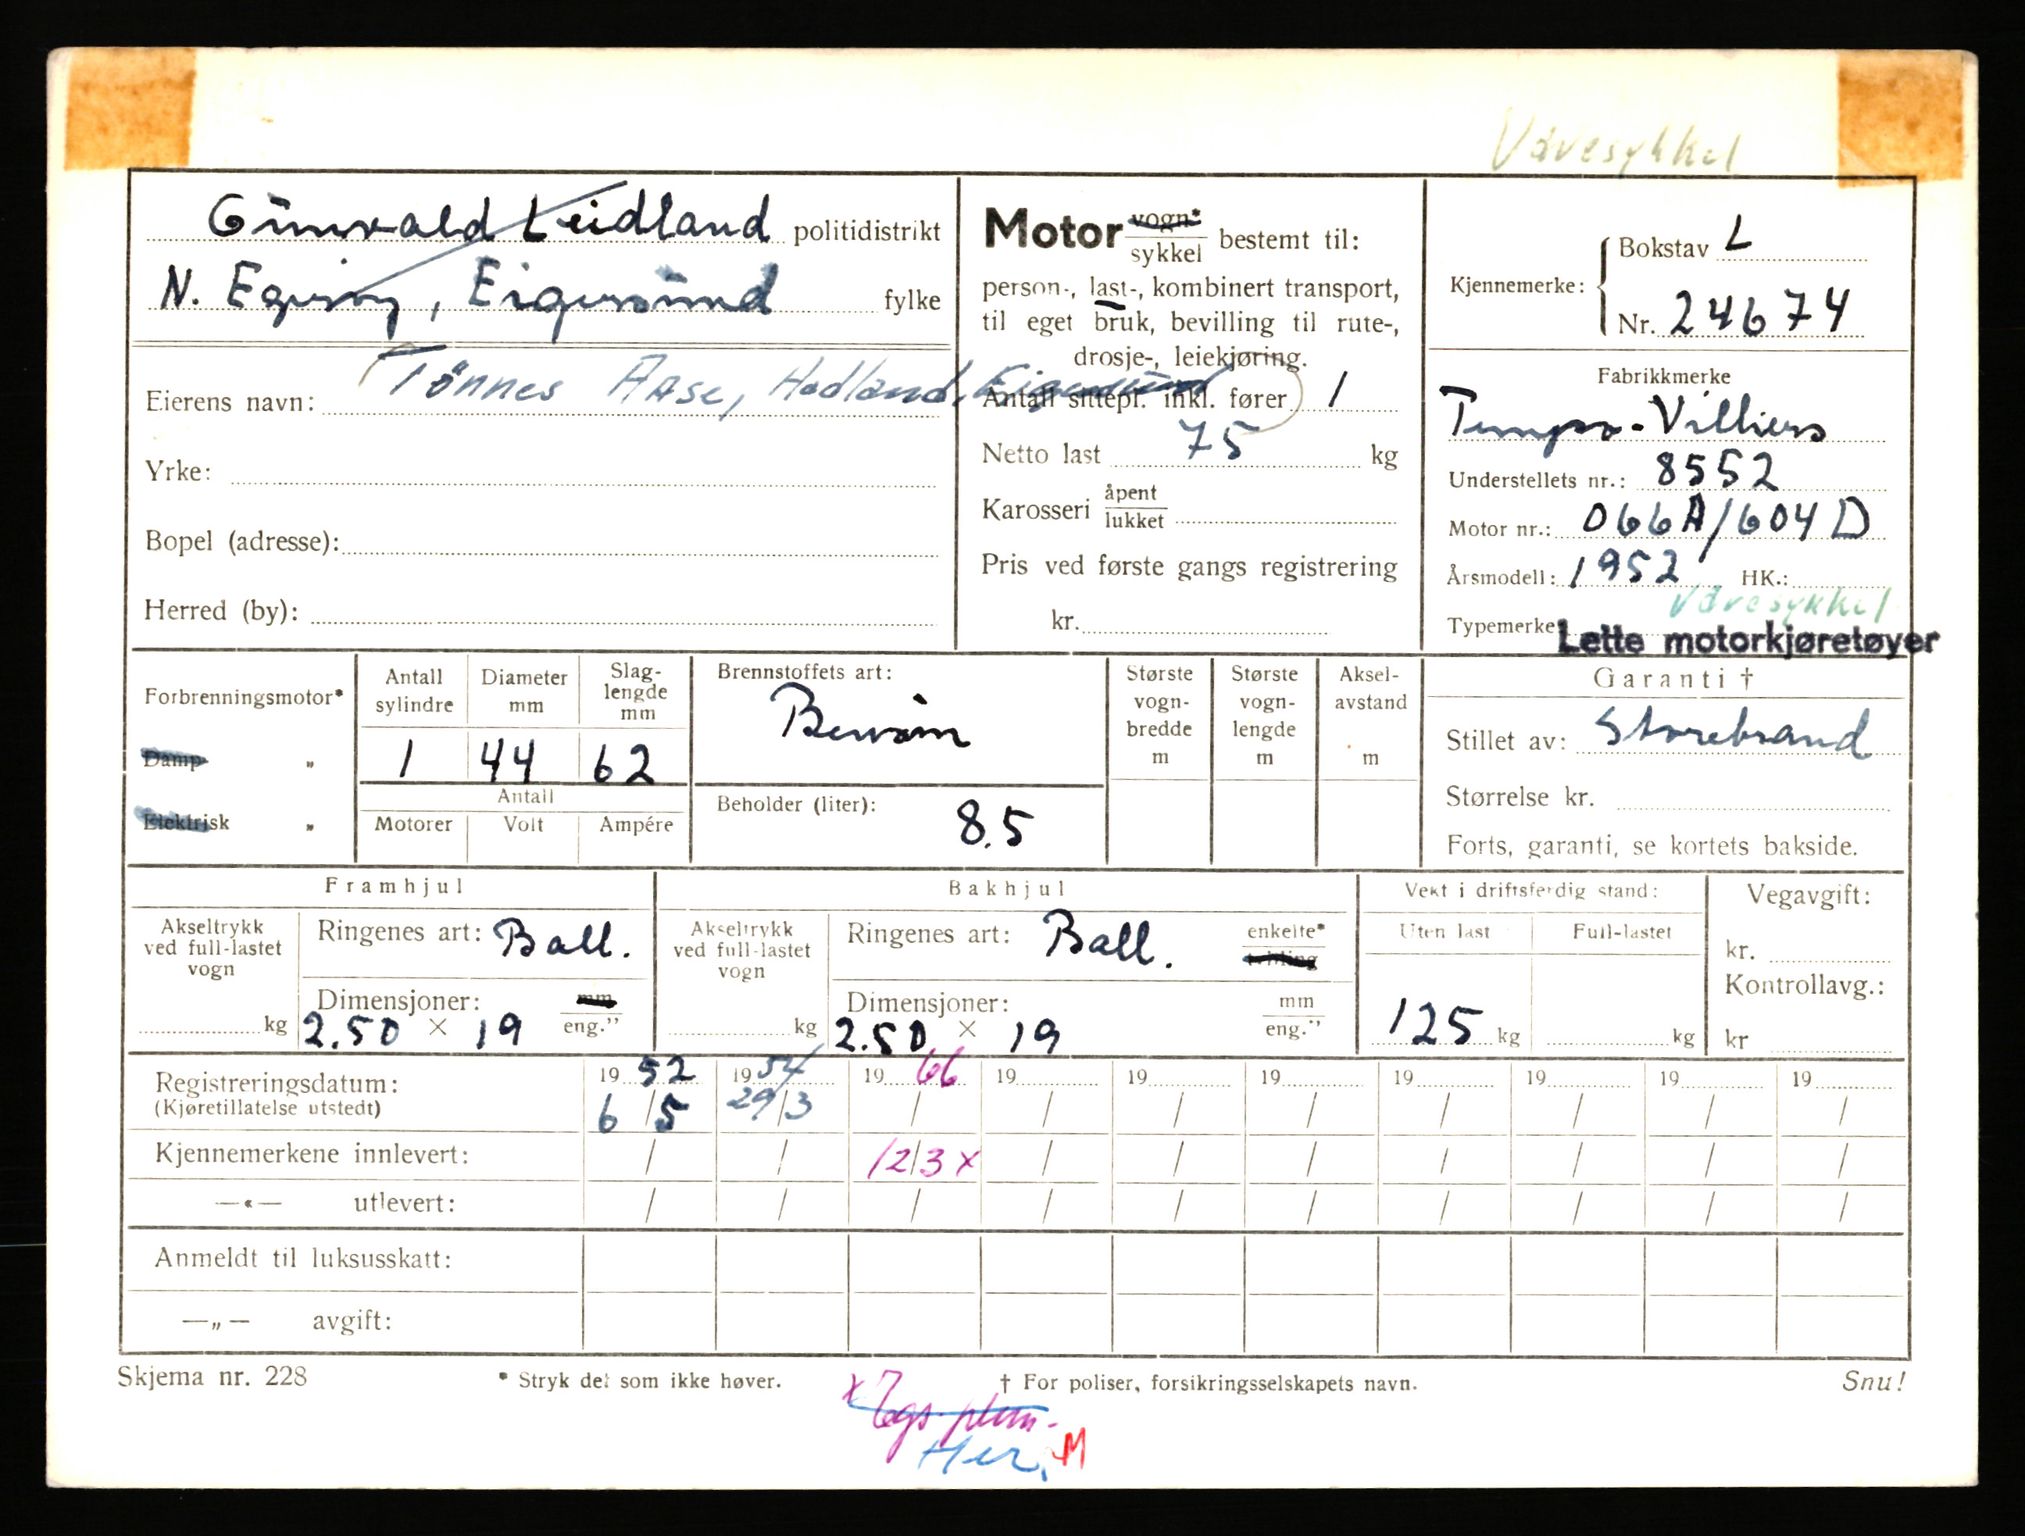 Varesykkel
Gunvald Leidland politidistrikt
N. Egerøy, Eigersund fylke
Eierens navn: Tönnes Aase, Hadland, Eigersund
Yrke:
Bopel (adresse):
Herred (by):
Motor vogn*/sykkel bestemt til:
person-, last-, kombinert transport,
til eget bruk, bevilling til rute-,
drosje-, leiekjøring.
Antall sittepl. inkl. fører 1
Netto last 75 kg
Karosseri åpent/lukket
Pris ved første gangs registrering
kr.
Kjennemerke: Bokstav L
Nr. 24674
Fabrikkmerke
Tempo-Villiers
Understellets nr.: 8552
Motor nr.: 066A/604D
Årsmodell: 1952 HK.:
Varesykkel
Typemerke Lette motorkjøretøyer
Forbrenningsmotor*
Damp "
Elektrisk "
Antall sylindre 1
Diameter mm 44
Slag-lengde mm 62
Antall
Motorer Volt Ampére
Brennstoffets art:
Bensin
Beholder (liter): 8.5
Største vogn-bredde m
Største vogn-lengde m
Aksel-avstand m
Garanti †
Stillet av: Storebrand
Størrelse kr.
Forts, garanti, se kortets bakside.
Framhjul
Akseltrykk ved full-lastet vogn kg
Ringenes art: Ball.
Dimensjoner: mm
2.50 × 19 eng."
Bakhjul
Akseltrykk ved full-lastet vogn kg
Ringenes art: Ball. enkelte* tvilling
Dimensjoner: mm
2.50 × 19 eng."
Vekt i driftsferdig stand:
Uten last Full-lastet
125 kg kg
Vegavgift:
kr.
Kontrollavg.:
kr
Registreringsdatum: 19 52 19 54 19 66 19 19 19 19 19 19 19
(Kjøretillatelse utstedt) 6/5 29/3 / / / / / / / /
Kjennemerkene innlevert: / / 12/3 x / / / / / / /
—«— utlevert: / / / / / / / / / /
Anmeldt til luksusskatt:
—„— avgift:
Skjema nr. 228 * Stryk det som ikke høver. † For poliser, forsikringsselskapets navn. Snu!
Her. M